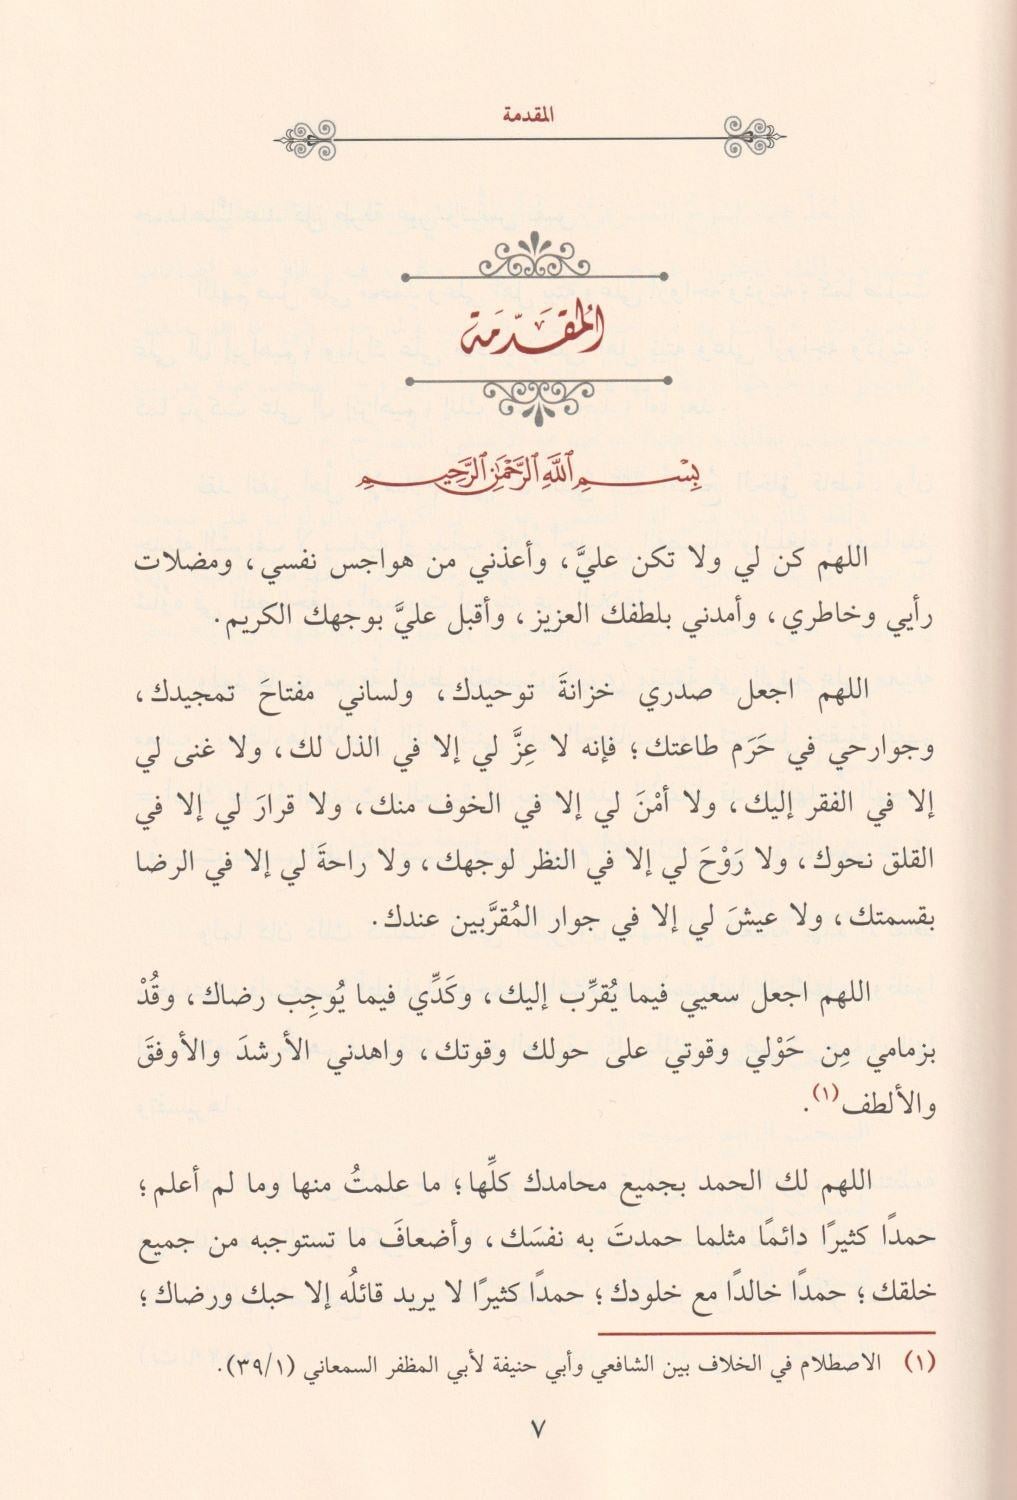 المقدمة
المُقَدّمَة
بِسْمِ اللَّهِ الرَّحْمَٰنِ الرَّحِيمِ
اللهم كن لي ولا تكن عليَّ، وأعذني من هواجس نفسي، ومضلات
رأيي وخاطري، وأمدني بلطفك العزيز، وأقبل عليَّ بوجهك الكريم.
اللهم اجعل صدري خزانةَ توحيدك، ولساني مفتاحَ تمجيدك،
وجوارحي في حَرَم طاعتك؛ فإنه لا عِزَّ لي إلا في الذل لك، ولا غنى لي
إلا في الفقر إليك، ولا أمْنَ لي إلا في الخوف منك، ولا قرارَ لي إلا في
القلق نحوك، ولا رَوْحَ لي إلا في النظر لوجهك، ولا راحةَ لي إلا في الرضا
بقسمتك، ولا عيشَ لي إلا في جوار المُقرَّبين عندك.
اللهم اجعل سعيي فيما يُقرِّب إليك، وكَدِّي فيما يُوجِب رضاك، وقُدْ
بزمامي مِن حَوْلي وقوتي على حولك وقوتك، واهدني الأرشدَ والأوفقَ
والألطف(١).
اللهم لك الحمد بجميع محامدك كلِّها؛ ما علمتُ منها وما لم أعلم؛
حمدًا كثيرًا دائمًا مثلما حمدتَ به نفسَك، وأضعافَ ما تستوجبه من جميع
خلقك؛ حمدًا خالدًا مع خلودك؛ حمدًا كثيرًا لا يريد قائلُه إلا حبك ورضاك؛
(١) الاصطلام في الخلاف بين الشافعي وأبي حنيفة لأبي المظفر السمعاني (٣٩/١).
٧